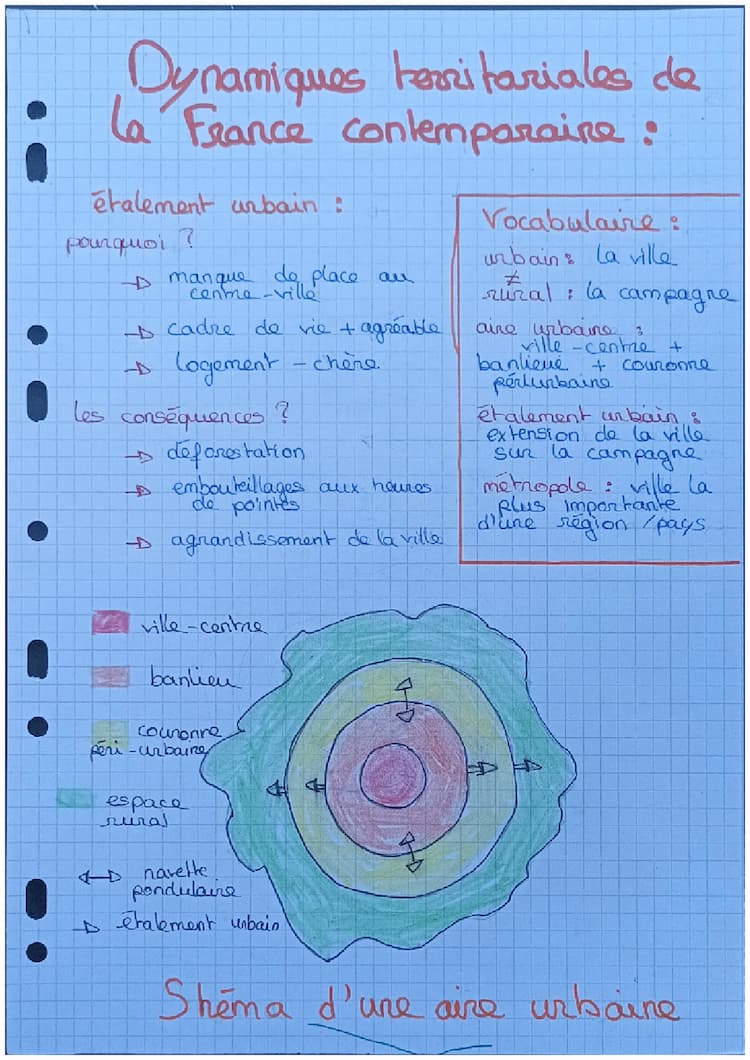 Dynamiques territoriales de
la France contemporaine :
étalement urbain :
pourquoi ?
→ manque de place au
centre-ville
→ cadre de vie + agréable
→ logement - chère
les conséquences ?
→ déforestation
→ embouteillages aux heures
de pointes
→ agrandissement de la ville
Vocabulaire :
urbain : la ville
≠
rural : la campagne
aire urbaine :
ville-centre +
banlieue + couronne
périurbaine
étalement urbain :
extension de la ville
sur la campagne
métropole : ville la
plus importante
d'une région / pays
ville-centre
banlieu
couronne
péri-urbaine
espace
rural
navette
pendulaire
étalement urbain
Shéma d'une aire urbaine